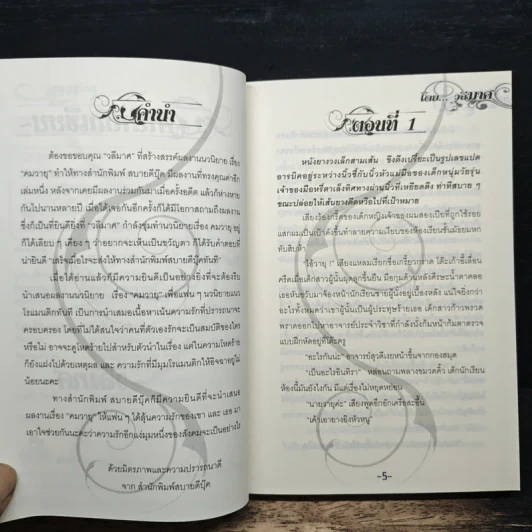 คำนำ
ต้องขอขอบคุณ "วลีมาศ" ที่สร้างสรรค์ผลงานนวนิยาย เรื่อง
"คมวายุ" ทำให้ทางสำนักพิมพ์ สบายดีบุ๊ค มีผลงานที่ทรงคุณค่าอีก
เล่มหนึ่ง หลังจากเคยมีผลงานร่วมกันมาเมื่อครั้งอดีต แล้วก็ห่างหาย
กันไปนานหลายปี เมื่อได้เจอกันอีกครั้งก็ได้มีโอกาสถามถึงผลงาน
ซึ่งก็เป็นที่ยินดียิ่งที่ "วลีมาศ" กำลังซุ่มทำนวนิยายเรื่อง คมวายุ อยู่
ก็ได้เลียบ ๆ เคียง ๆ ว่าอยากจะเห็นเป็นขวัญตา ก็ได้รับคำตอบที่
น่ายินดี "เสร็จเมื่อไรจะส่งให้ทางสำนักพิมพ์สบายดีบุ๊คทันที"
เมื่อได้อ่านแล้วก็มีความยินดีเป็นอย่างยิ่งที่จะต้องรีบ
นำเสนอผลงานนวนิยาย เรื่อง "คมวายุ" เพื่อแฟน ๆ นวนิยายแนว
โรแมนติกทันที เป็นการนำเสนอเนื้อหาเน้นความรักที่ปรารถนาจะ
ครอบครอง โดยที่ไม่ได้สนใจว่าคนที่ตัวเองรักจะเป็นสมบัติของใคร
หรือไม่ อาจจะดูโหดร้ายไปสำหรับตัวนำในเรื่อง แต่ในความโหดร้าย
ก็ยังแฝงไปด้วยเหตุผล และ ความรักที่มีมุมโรแมนติกให้อิจฉาอยู่ไม่
น้อยนะคะ
ทางสำนักพิมพ์ สบายดีบุ๊คก็มีความยินดีที่จะนำเสนอ
ผลงานเรื่อง "คมวายุ" ให้แฟน ๆ ได้ลุ้นความรักของเขา และ เธอ มา
เอาใจช่วยกันนะคะว่าความรักอีกแง่มุมหนึ่งของสังคมจะเป็นอย่างไร
ด้วยมิตรภาพและความปรารถนาดี
จาก สำนักพิมพ์สบายดีบุ๊ค
โดย... วลีมาศ
ตอนที่ 1
หนังยางวงเล็กสามเส้น ซึ่งดึงเปรี๊ยะเป็นรูปเลขแปด
อารบิคอยู่ระหว่างนิ้วชี้กับนิ้วหัวแม่มือของเด็กหนุ่มวัยรุ่น
เจ้าของมือหรี่ตาเล็งทิศทางผ่านนิ้วที่เหยียดตึง ท่าทีสบาย ๆ
ขณะปล่อยให้เส้นยางดีดหวือไปที่เป้าหมาย
เสียงร้องกรี๊ดของเด็กหญิงเจ้าของผมสองเปียที่ถูกใช้รอย
แสกผมเป็นเป้าดังขึ้นทำลายความเงียบของห้องเรียนชั้นมัธยมหก
ทับสิบห้า
"ไอ้วายุ !" เสียงแหลมเรียกชื่อเกรี้ยวกราด โต๊ะเก้าอี้เลื่อน
ครืดเมื่อเด็กสาวผู้นั้นผุดลุกขึ้นยืน มือกุมด้วยหลังศีรษะน้ำตาคลอ
เธอหันขวับมาจ้องหน้านักเรียนชายผู้นั่งอยู่เบื้องหลัง แน่ใจยิ่งกว่า
อะไรทั้งหมดว่าเขาผู้นั้นเป็นผู้ประทุษร้ายเธอ เด็กสาวก้าวพรวด
พราดออกไปหาอาจารย์ประจำวิชาที่กำลังนั่งก้มหน้าก้มตาตรวจ
แบบฝึกหัดอยู่ที่โต๊ะครู
"อะไรกันน่ะ" อาจารย์สุวดีเงยหน้าขึ้นจากกองสมุด
"เป็นอะไรอินทิรา" หล่อนถามพลางขมวดคิ้ว เด็กนักเรียน
ห้องนี้มันยังไงกัน มีแต่เรื่องไม่หยุดหย่อน
"นายวายุค่ะ" เสียงพูดอึกอักเครือสะอื้น
"เค้าเอายางยิงหัวหนู"
-5-